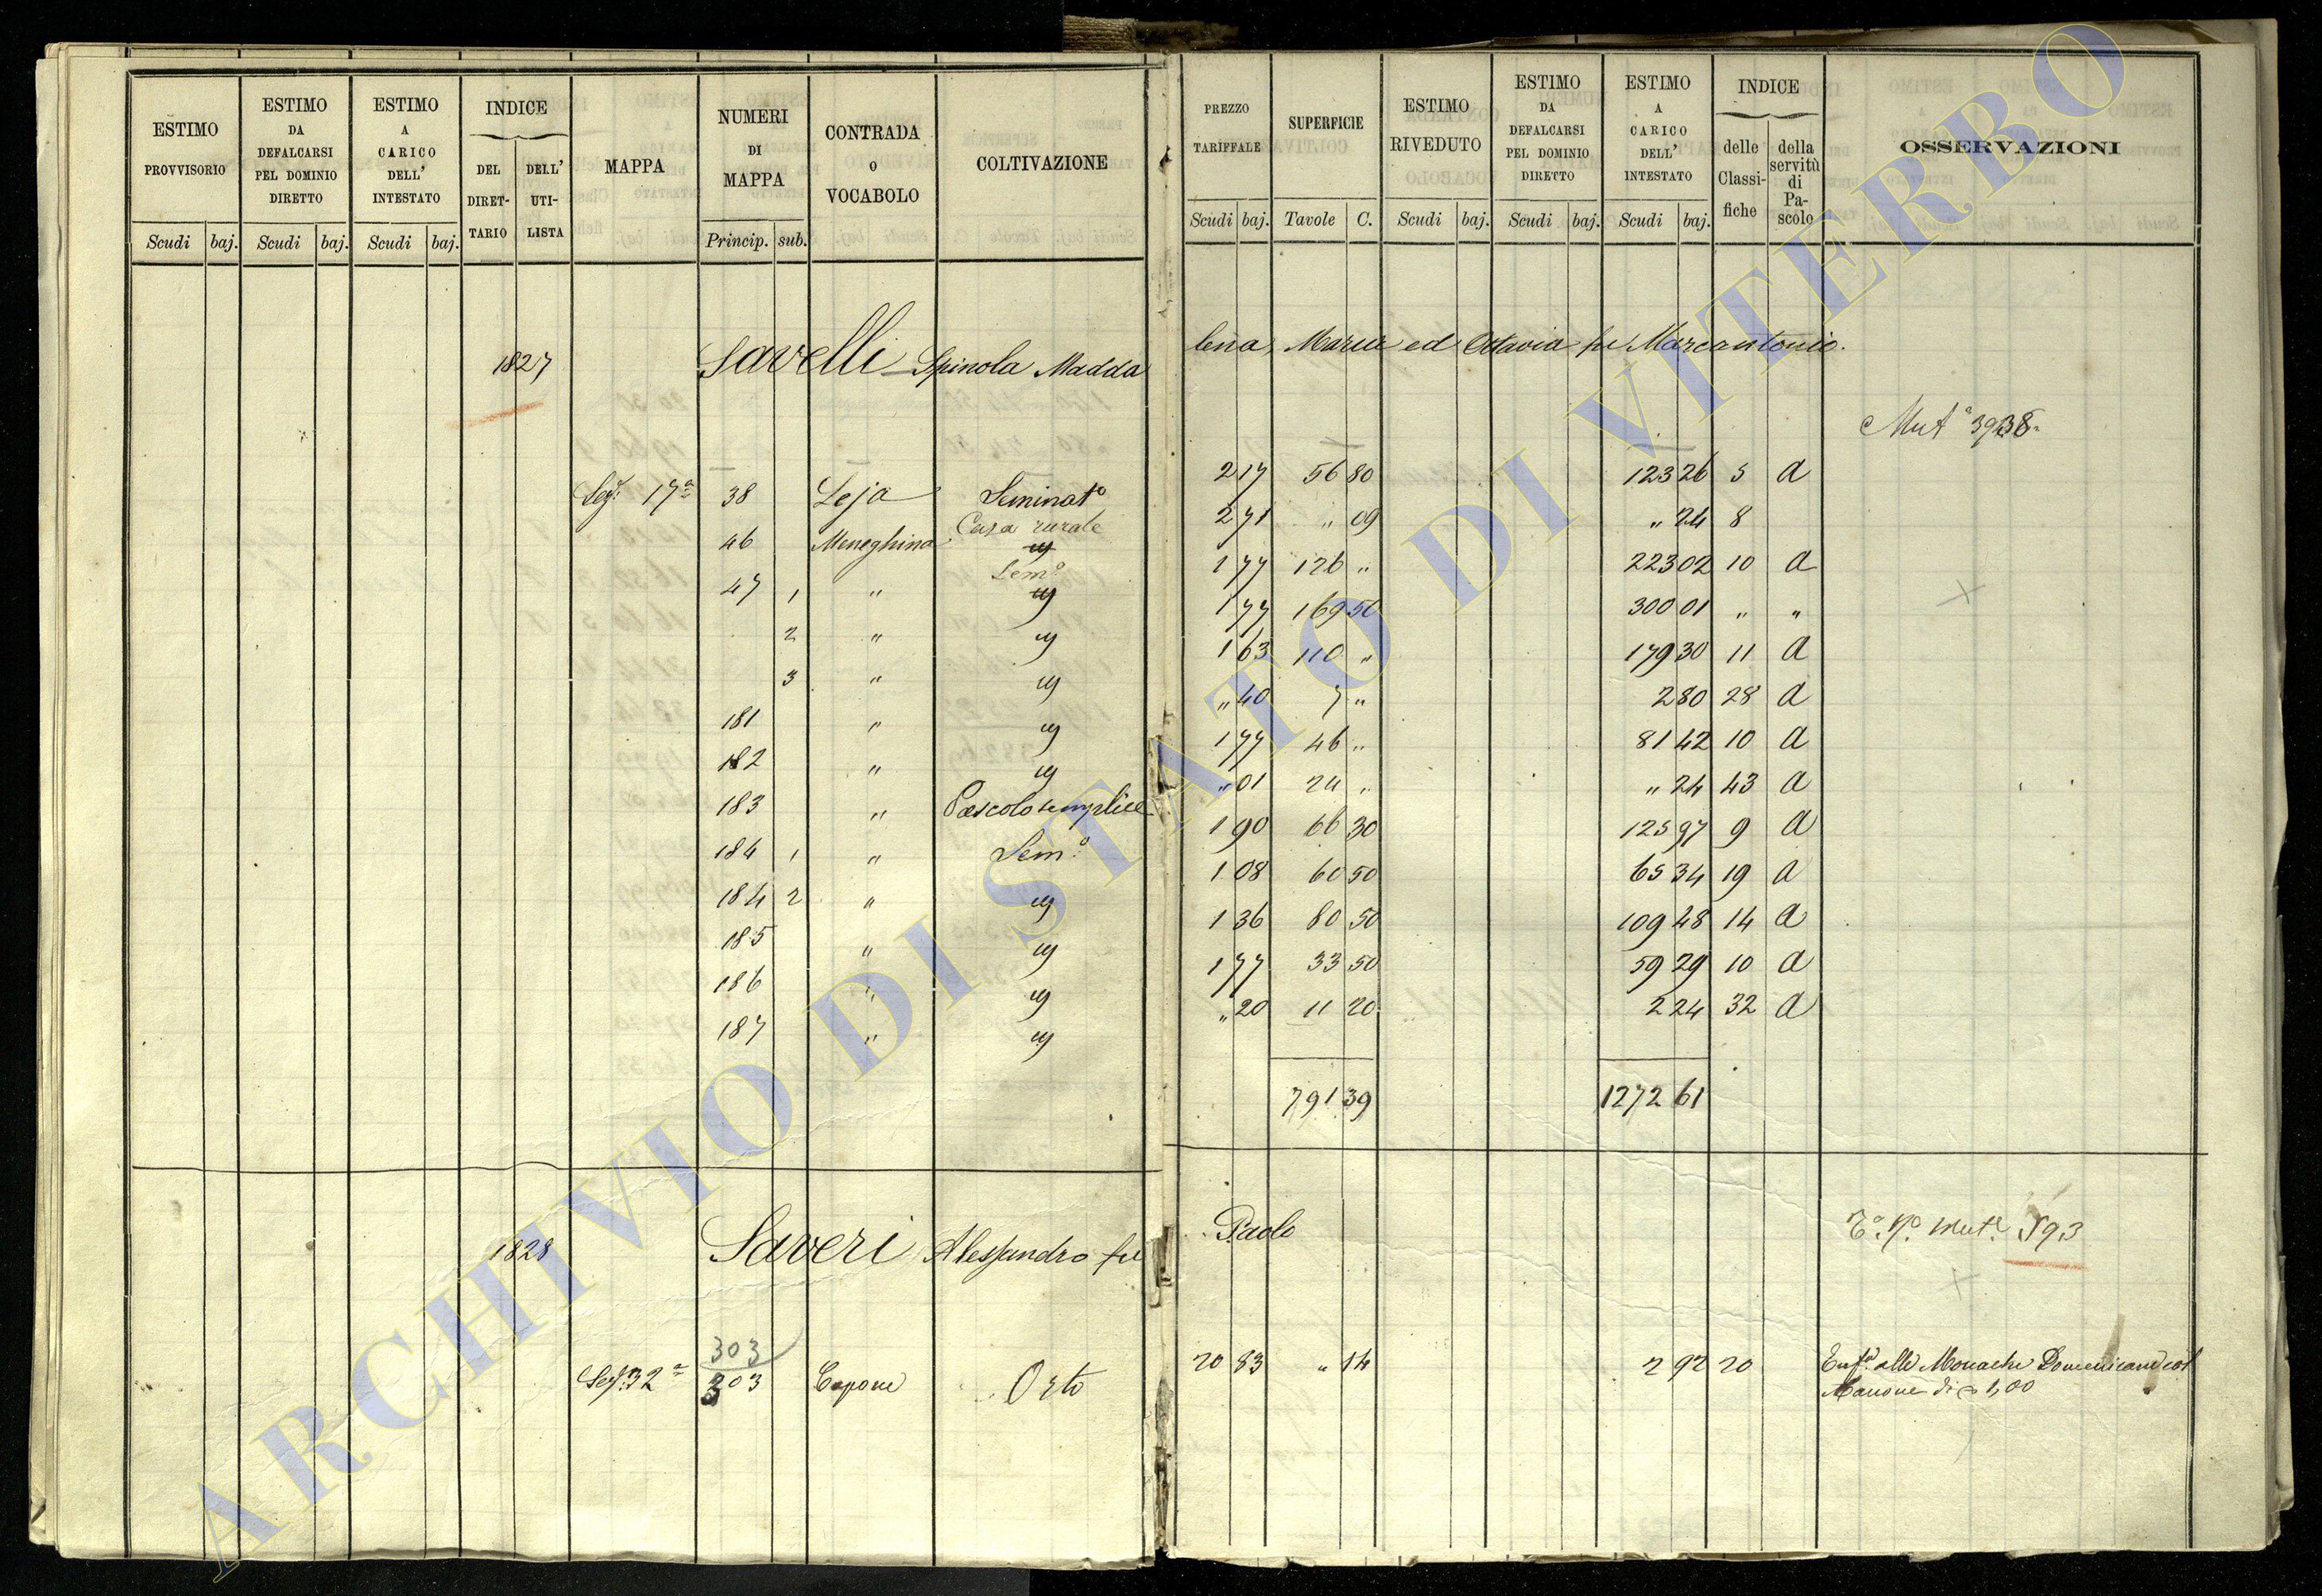 ESTIMO PROVVISORIO Scudi baj.
ESTIMO DA DEFALCARSI PEL DOMINIO DIRETTO Scudi baj.
ESTIMO A CARICO DELL' INTESTATO Scudi baj.
INDICE DEL DIRET-TARIO DELL' UTI-LISTA
MAPPA
NUMERI DI MAPPA Princip. sub.
CONTRADA o VOCABOLO
COLTIVAZIONE
PREZZO TARIFFALE Scudi baj.
SUPERFICIE Tavole C.
ESTIMO RIVEDUTO Scudi baj.
ESTIMO DA DEFALCARSI PEL DOMINIO DIRETTO Scudi baj.
ESTIMO A CARICO DELL' INTESTATO Scudi baj.
INDICE delle Classi-fiche della servitù di Pa-scolo
OSSERVAZIONI
1827 Savelli Spinola Maddalena, Maria ed Ottavia fu Marcantonio.
Mut.ª 3938
Sez. 17ª 38 Leja Seminato 2 17 56 80 123 26 5 a
46 Meneghina Casa rurale 2 71 " 09 " 24 8
47 1 " Sem.º 1 77 126 " 223 02 10 a
2 " " 1 77 169 50 300 01 " "
3 " " 1 63 110 " 179 30 11 a
181 " " " 40 7 " 2 80 28 a
182 " " 1 77 46 " 81 42 10 a
183 " Pascolo semplice " 01 24 " " 24 43 a
184 1 " Sem.º 1 90 66 30 125 97 9 a
184 2 " " 1 08 60 50 65 34 19 a
185 " " 1 36 80 50 109 48 14 a
186 " " 1 77 33 50 59 29 10 a
187 " " " 20 11 20 2 24 32 a
791 39 1272 61
1828 Saveri Alessandro fu Paolo
Mut.e 593
303
Sez. 32ª 303 Capone Orto 20 83 " 14 2 92 20 Enf.ª alle Monache Domenicane col
Canone di 1,00
ARCHIVIO DI STATO DI VITERBO